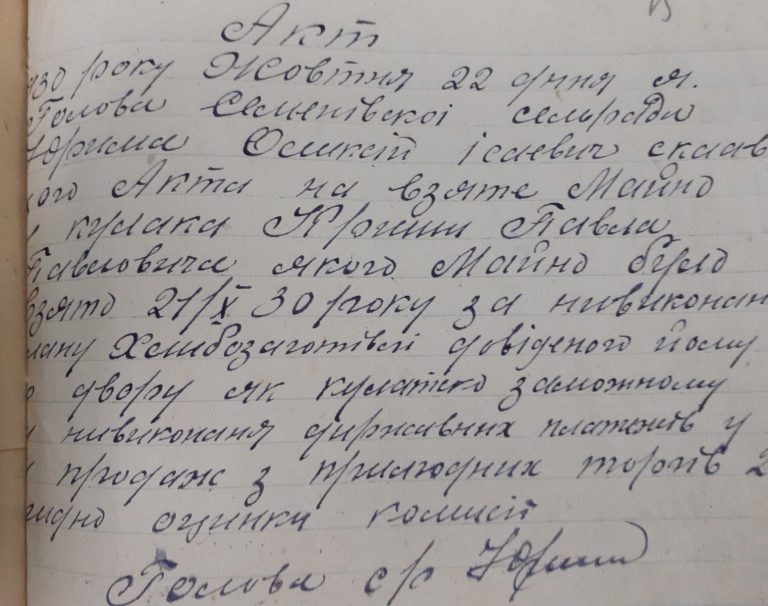 Акт
930 року Жовтня 22 дння я.
Голова Семенівскоі селради
Юрима Оликсій ісаевич склав
кого Акта на взяте Майно
у кулака Криши Павла
Павловича якого Майно було
взято 21/X 30 року за нивиконан
плану Хлибозаготівлі довіденого йому
до двору як кулатско заможному
и нивиконаня державних платежів у
продаж з прилюдних торгів 2
гидно оцинки комисіі
Голова с/р Юрима